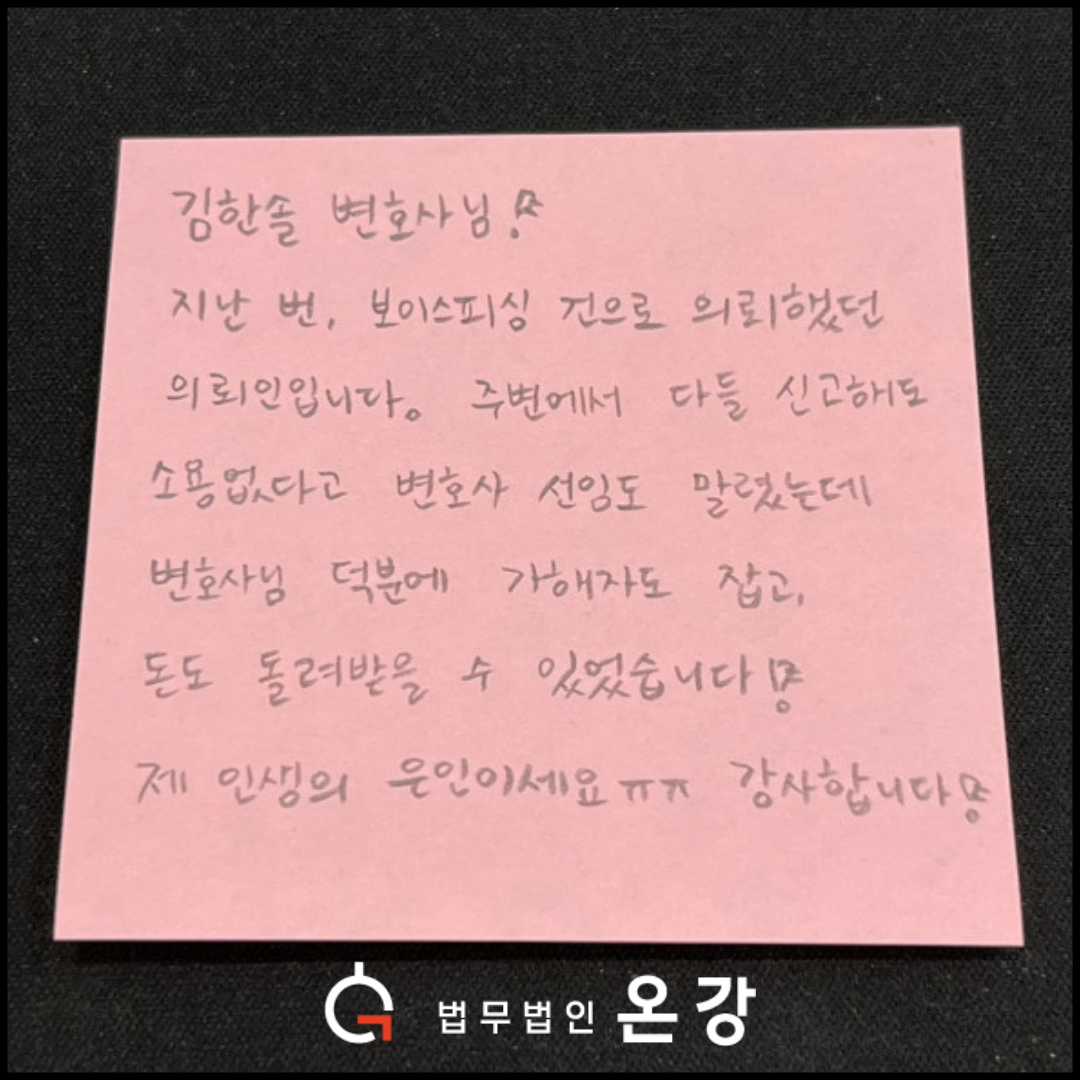 김한솔 변호사님!
지난 번, 보이스피싱 건으로 의뢰했던
의뢰인입니다. 주변에서 다들 신고해도
소용없다고 변호사 선임도 말렸는데
변호사님 덕분에 가해자도 잡고,
돈도 돌려받을 수 있었습니다!
제 인생의 은인이세요ㅠㅠ 감사합니다!
법무법인 온강